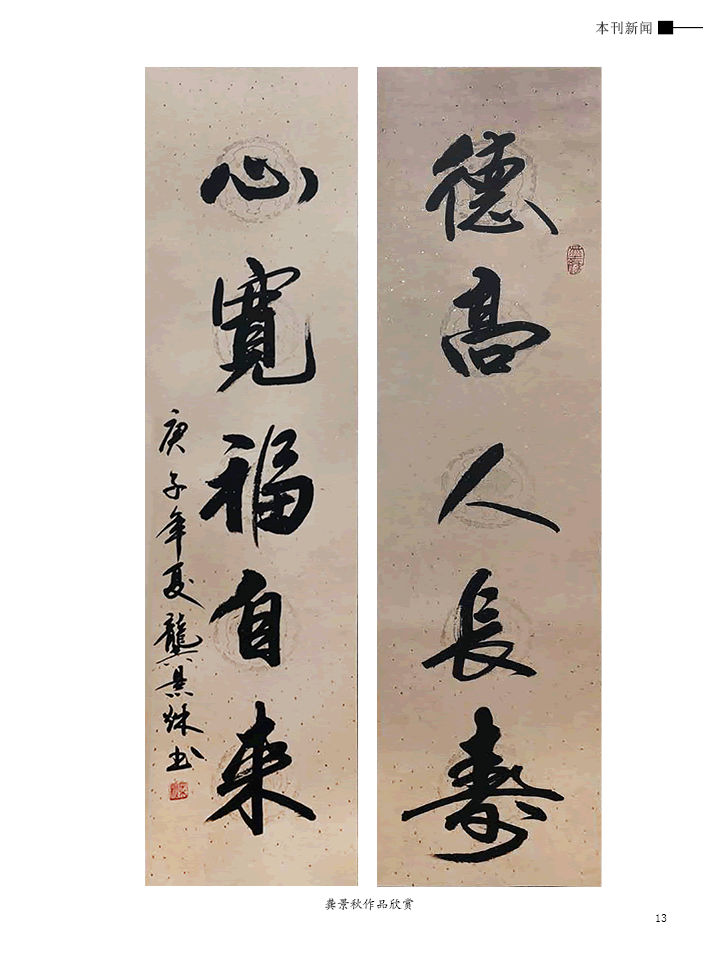 本刊新闻
德高人長壽
心寬福自來
庚子年夏龔景秋书
龚景秋作品欣赏
13